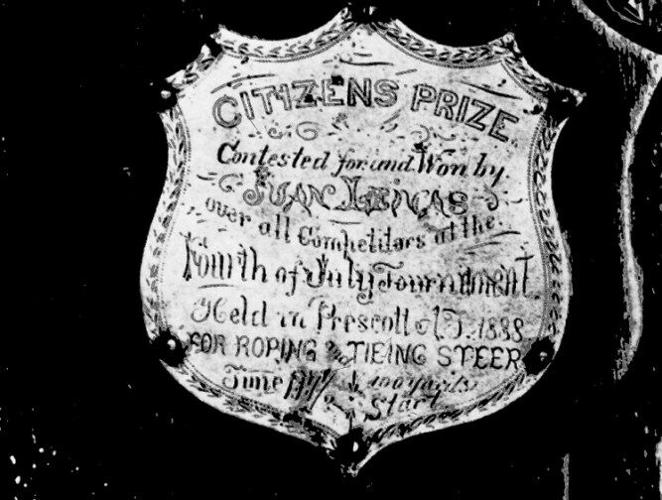 CITIZENS PRIZE
Contested for and Won by
JUAN LEIVAS
over all Competitors at the
Fourth of July Tournament
Held in Prescott A.T. 1888
FOR ROPING & TIEING STEER
Time 100 yards
Start